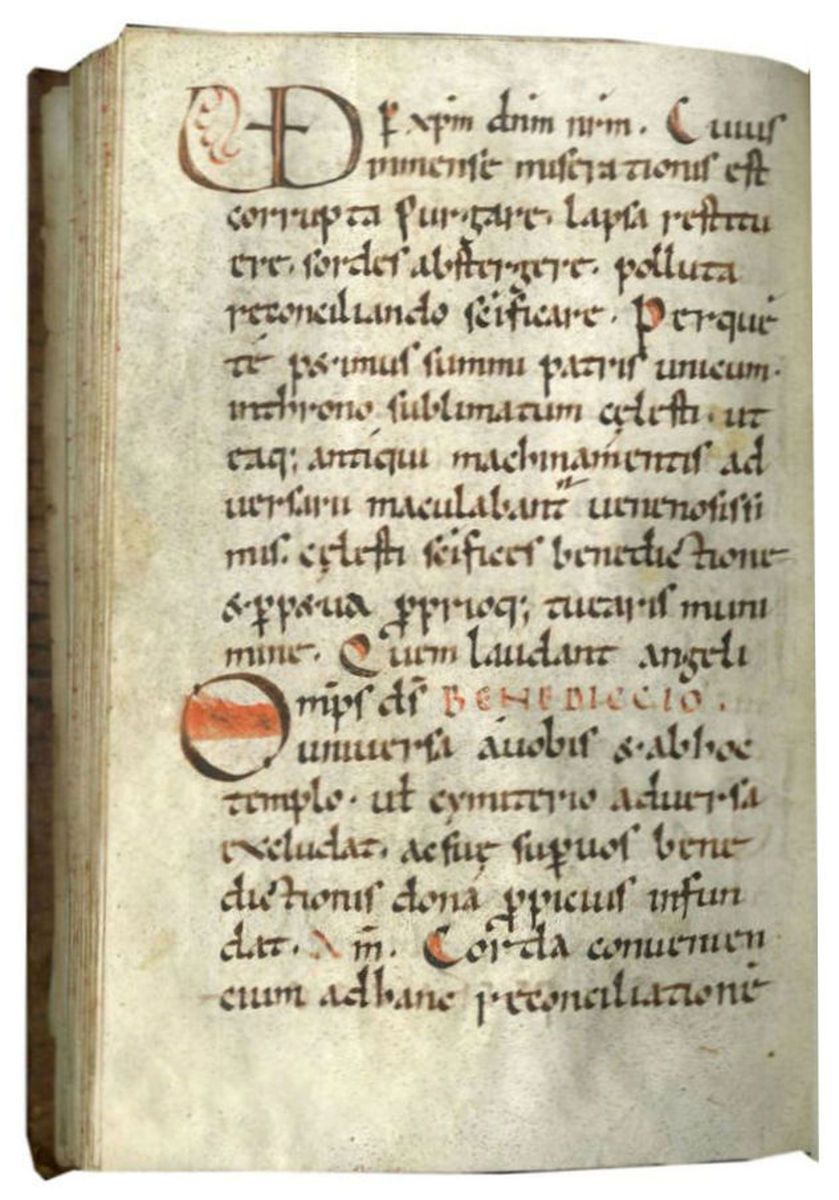 UD p̄ xp̄m dn̄m nr̄m. Cuius
inmense miserationis est
corrupta purgare. lapsa restitu
ere. sordes abstergere. polluta
reconciliando sc̄ificare. Perque
té petimus summi patris unicum.
inthrono sublimatum cęlesti. ut
eaq; antiqui machinamentis ad
uersarii maculabant uenenosissi
mis. cęlesti sc̄ifices benedictione
& ꝑpetua ꝓprioq; tuearis muni
mine. Quem laudant angeli
Omp̄s ds̄ BENEDICCIO.
uniuersa áuobis & abhoc
templo. uł cymiterio aduersa
excludat. acsuę sup̱uos bene
dictionis dona ꝓpicius infun
dat. Am̄. Corda conuenien
cium adhanc reconciliationē